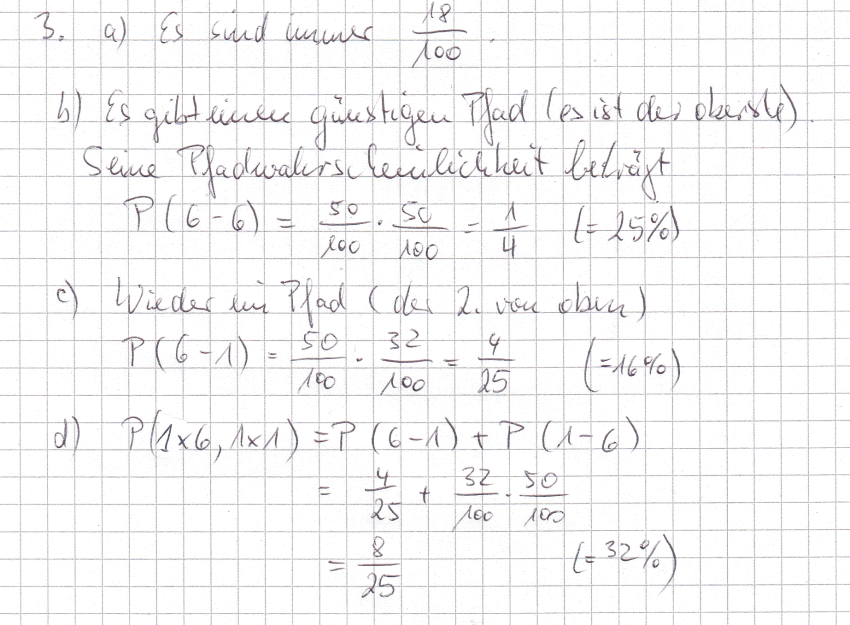 3. a) Es sind immer 18/100.
b) Es gibt einen günstigen Pfad (es ist der oberste).
Seine Pfadwahrscheinlichkeit beträgt
P(6-6) = 50/100 · 50/100 = 1/4 (= 25%)
c) Wieder ein Pfad (der 2. von oben)
P(6-1) = 50/100 · 32/100 = 4/25 (=16%)
d) P(1x6, 1x1) = P(6-1) + P(1-6)
= 4/25 + 32/100 · 50/100
= 8/25 (= 32%)